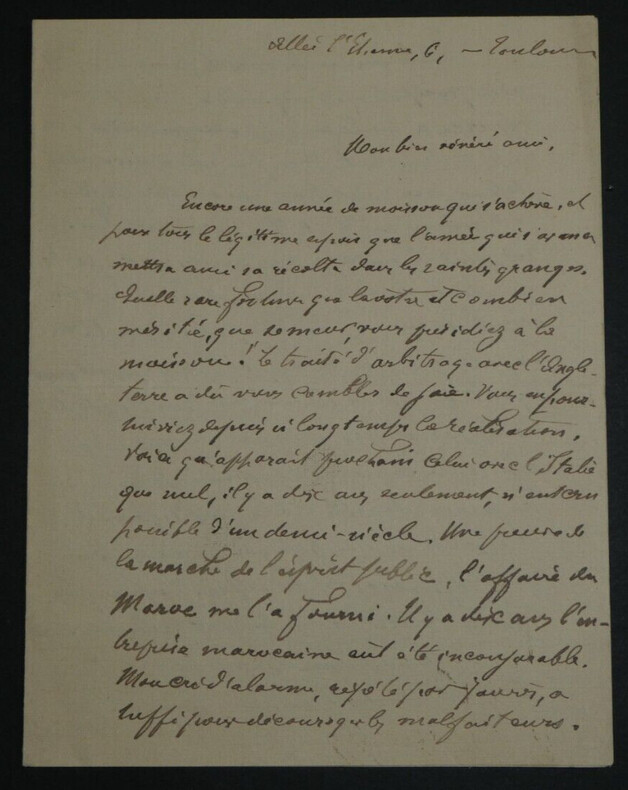 Allée l'Etienne, 6, — Toulouse
Mon bien vénéré ami,
Encore une année de moisson qui s'achève, et
pour tous le légitime espoir que l'année qui
mettra aussi sa récolte dans les saintes granges.
Quelle rare fortune que la votre et combien
méritée, que semeur, vous présidiez à la
moisson ! Le traité d'arbitrage avec l'Angle-
terre a dû vous combler de joie. Vous en pour-
suiviez depuis si longtemps la réalisation.
Voici qu'apparait prochain celui avec l'Italie
que nul, il y a dix ans seulement, n'eut cru
possible d'un demi-siècle. Une preuve de
la marche de l'esprit public, l'affaire du
Maroc me l'a fourni. Il y a dix ans l'en-
treprise marocaine eût été incomparable.
Mon cri d'alarme, répété par Jaurès, a
suffi pour décourager les malfaiteurs.